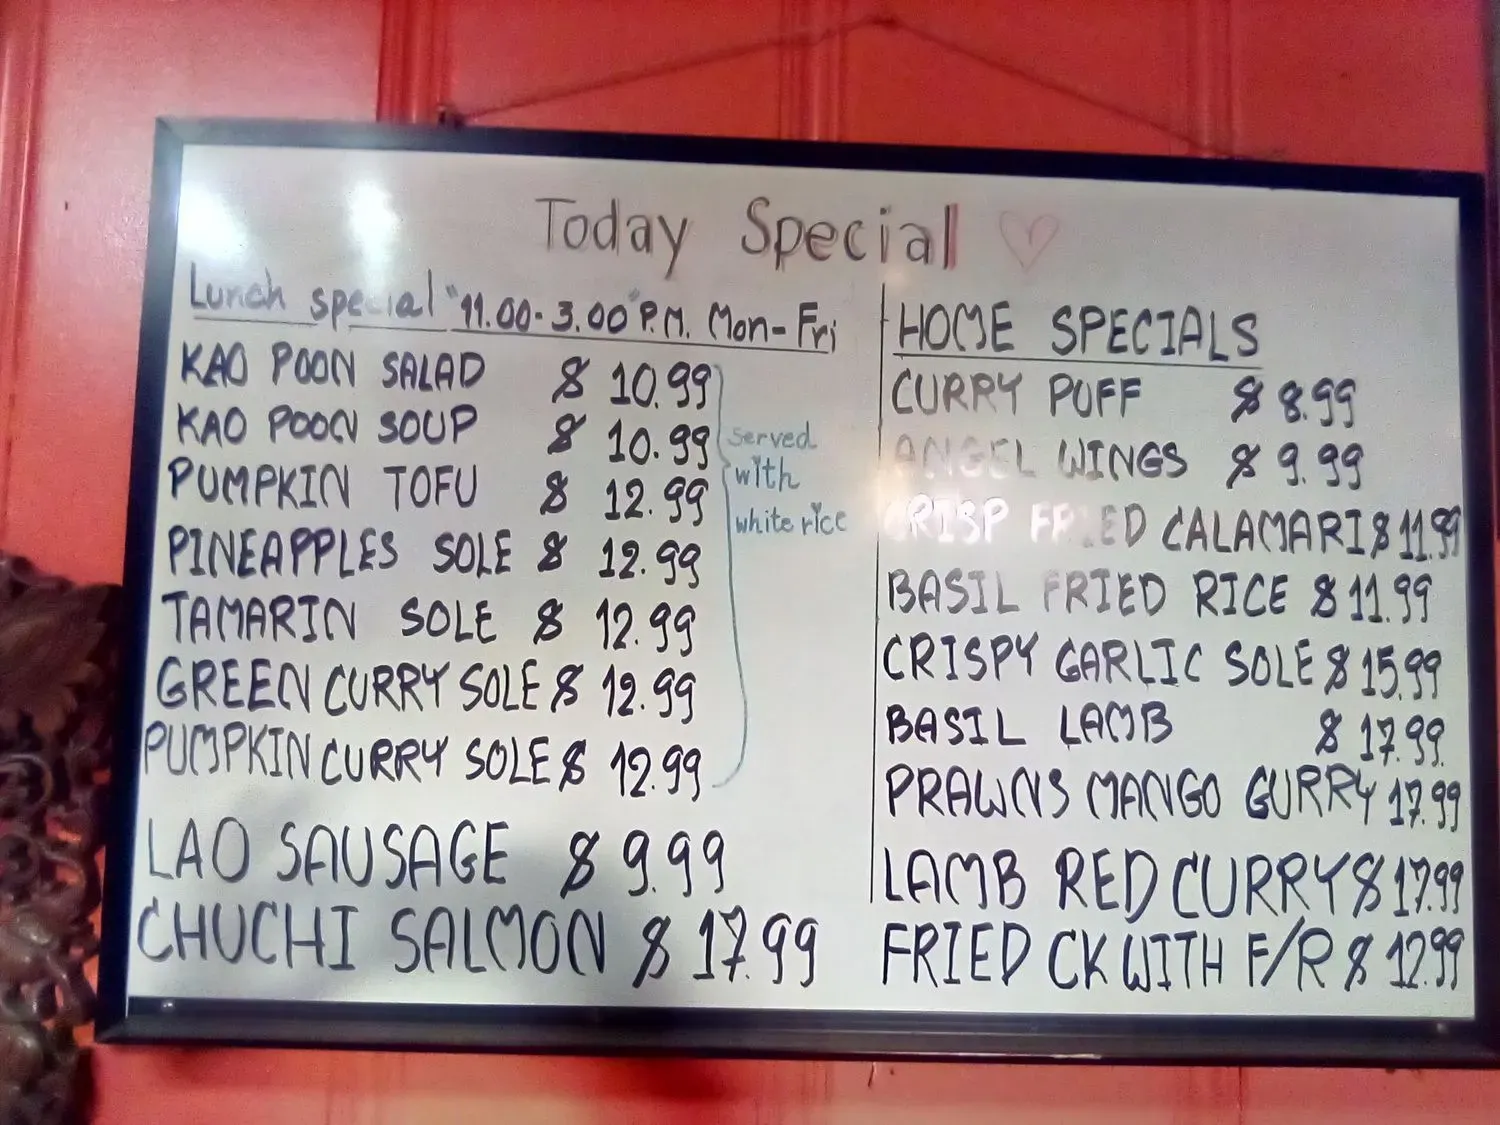 Today Special
Lunch special "11.00-3.00"P.M. Mon-Fri
KAO POON SALAD $ 10.99
KAO POON SOUP $ 10.99
PUMPKIN TOFU $ 12.99
PINEAPPLES SOLE $ 12.99
TAMARIN SOLE $ 12.99
GREEN CURRY SOLE $ 12.99
PUMPKIN CURRY SOLE $ 12.99
served
with
white rice
LAO SAUSAGE $ 9.99
CHUCHI SALMON $ 17.99
HOME SPECIALS
CURRY PUFF $ 8.99
ANGEL WINGS $ 9.99
CRISP FRIED CALAMARI $ 11.99
BASIL FRIED RICE $ 11.99
CRISPY GARLIC SOLE $ 15.99
BASIL LAMB $ 17.99
PRAWNS MANGO CURRY 17.99
LAMB RED CURRY $ 17.99
FRIED CK WITH F/R $ 12.99